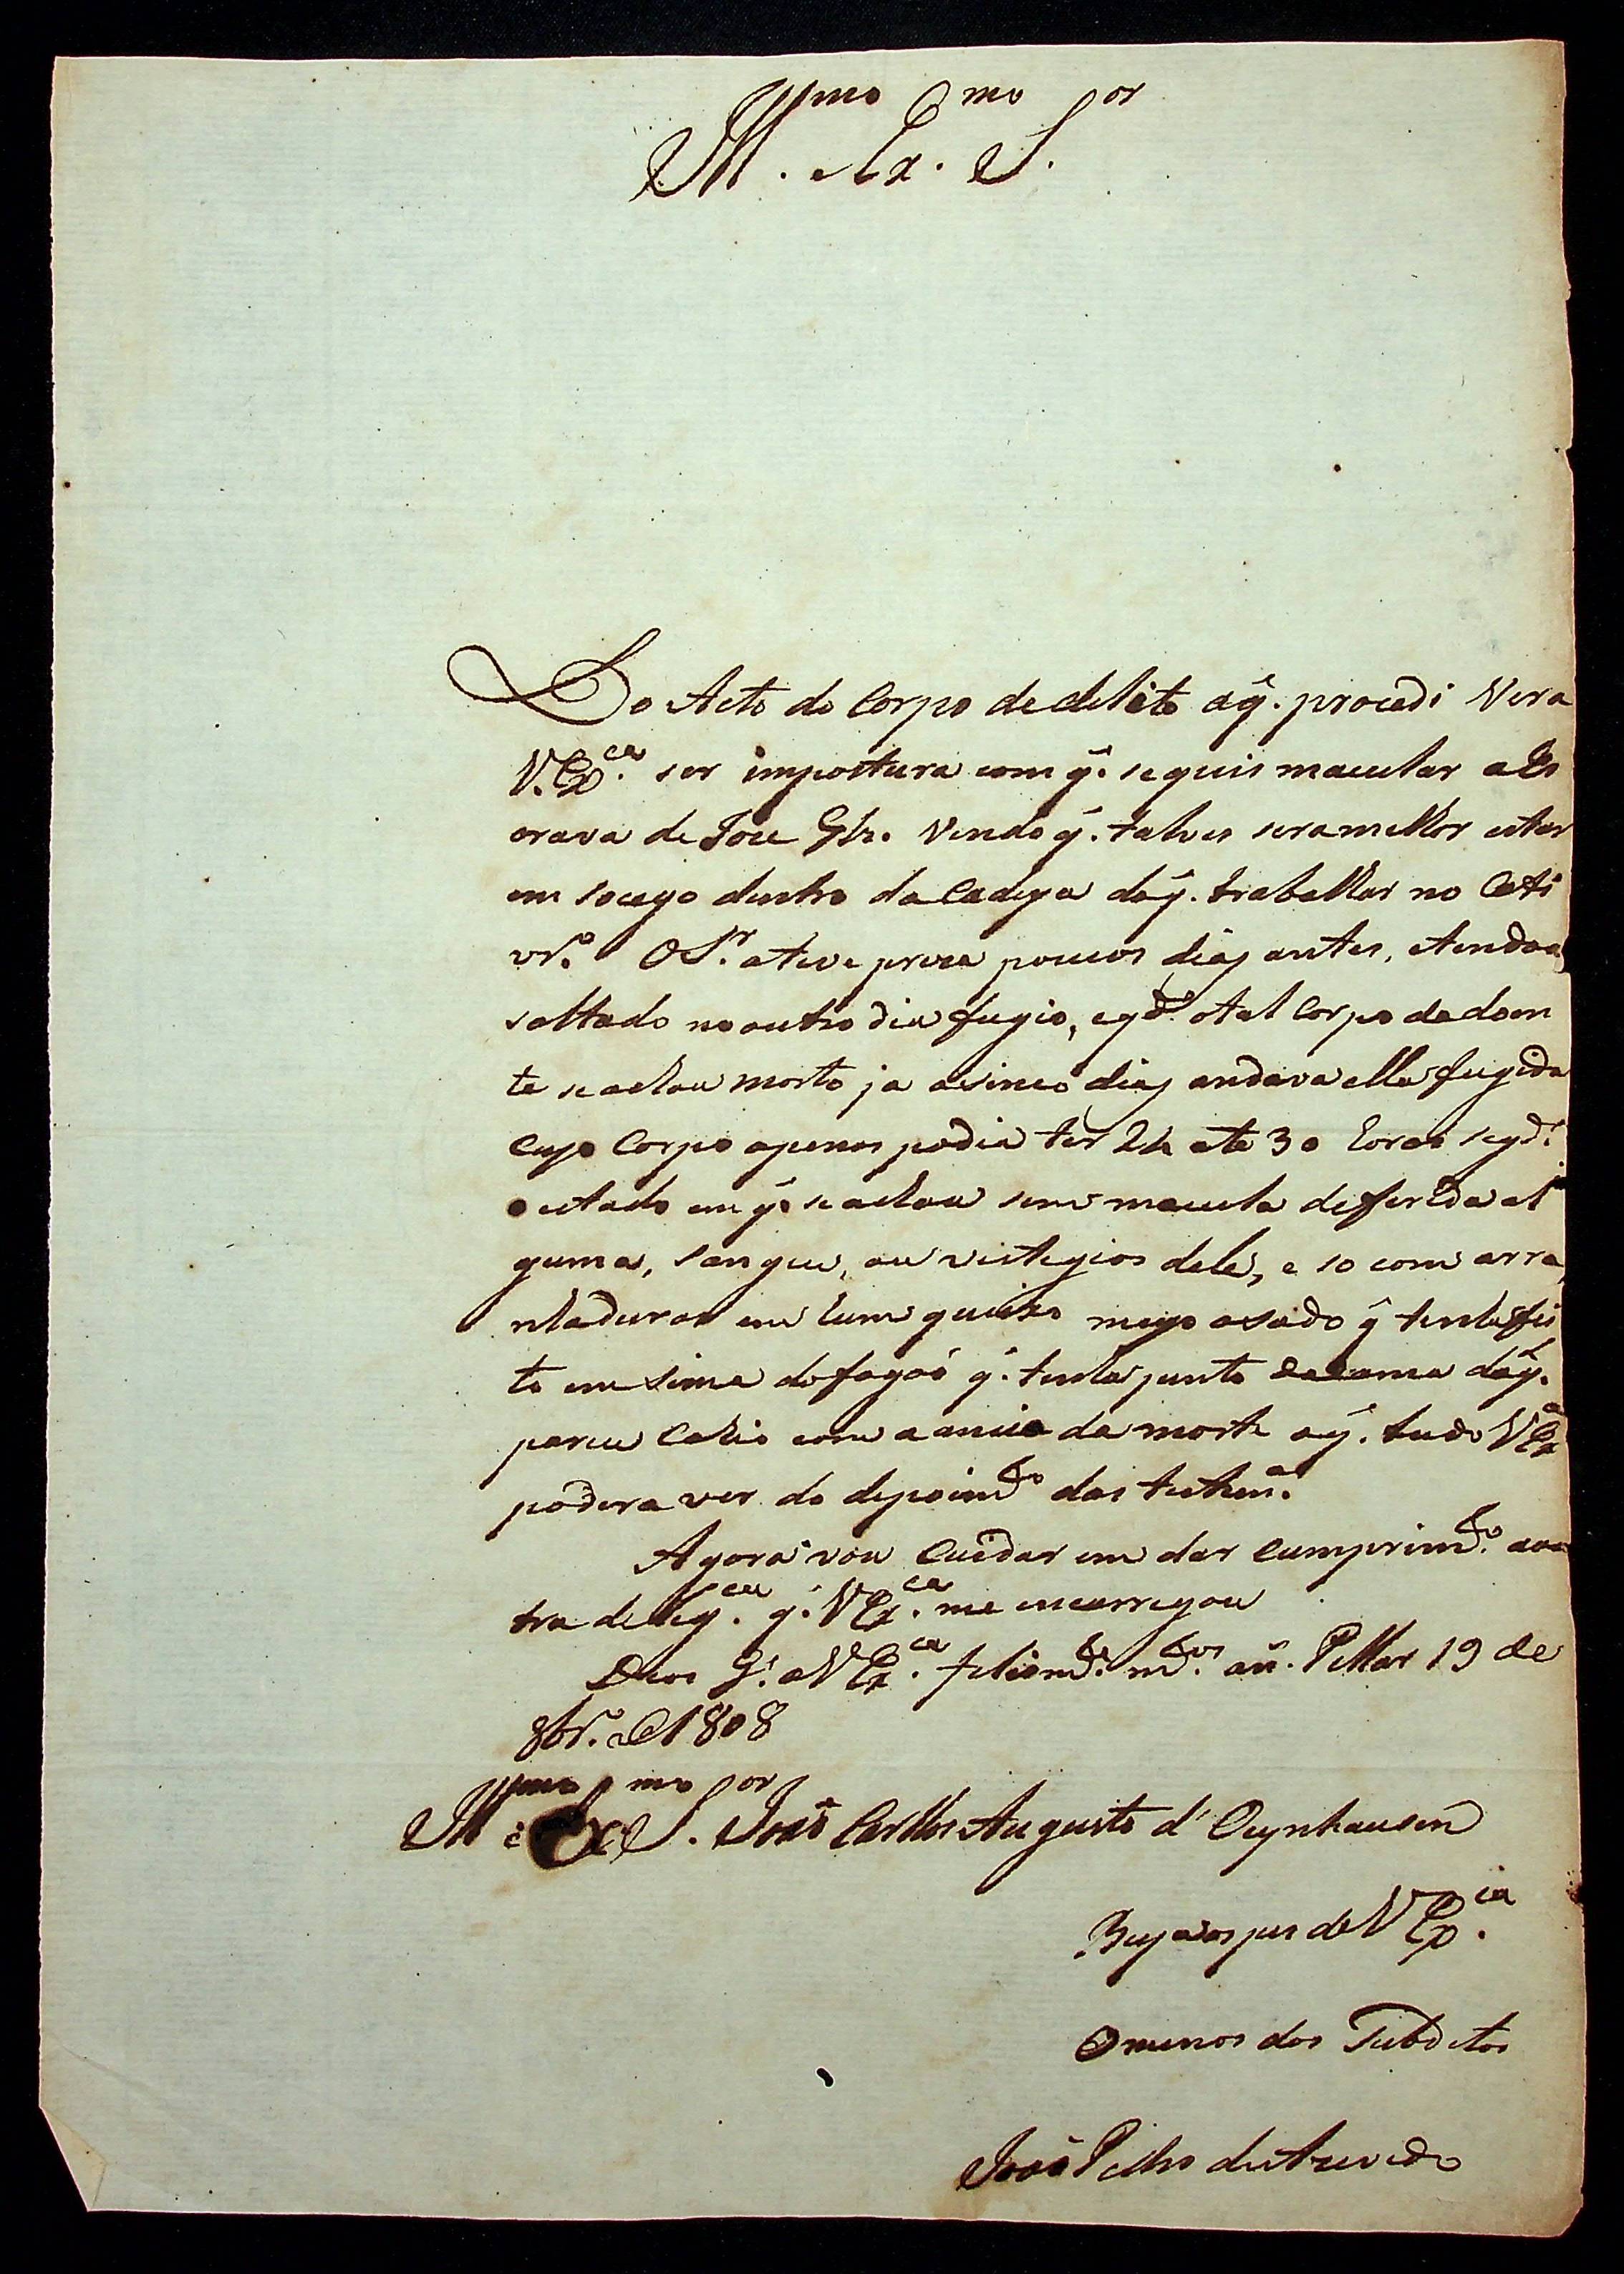 Ill.mo Ex.mo S.or
Do Acto do Corpo de delito aq̃. procedi Vera
V. Ex.ca ser impostura com q̃. se quis macular a Es
crava de Joze Glz. Vendo q̃. talves sera melhor estar
em socego dentro da Cadeya doq̃. trabalhar no Cati
vr.o O S.r a teve preza poucos dias antes, e tendo a
soltado no outro dia fugio, e qd.o o tal Corpo do doen
te se achou morto ja a sinco dias andava ella fugida
cujo Corpo apenas podia ter 24 ate 30 horas segd.o
o estado em q̃. se achou sem macula de ferida al
guma, sangue, ou vestegios dele, e so com arra
nhaduras em hum queixo meyo asado q̃ tinha fei
to em sima do fogaõ q̃. tinha junto da cama doq̃.
parece cahio com a ancia da morte aq̃. tudo V Ex.a
podera ver do depoim.to das testem.as
Agora vou cuidar em dar cumprim.to a ou
tra delig.ca q̃. V Ex.ca me encarregou
Deos G.e a V Ex.ca felism.te m.tos an̄. Pillar 19 de
8br.o de 1808
Ill.mo Ex.mo S.or Joaõ Carllos Augusto d' Oeynhausen
Beyja os pes de V Ex.cia
O menor dos Subditos
Joaõ Pedro de Azevedo